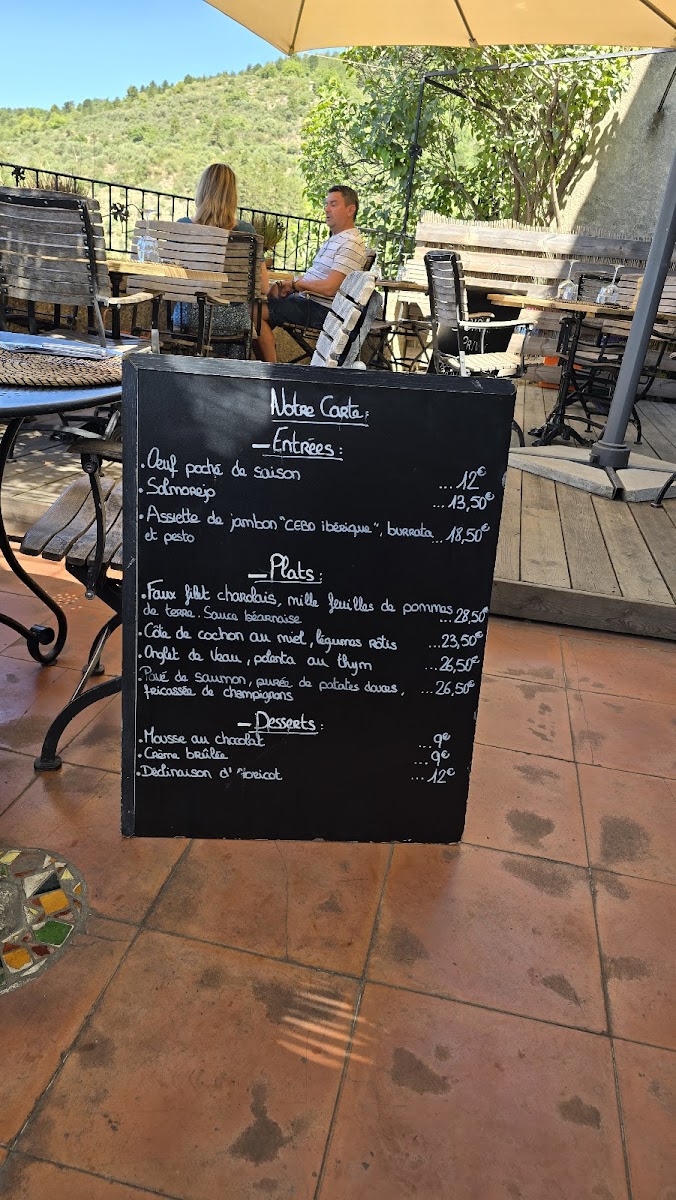 Notre Carte:
— Entrées :
• Oeuf poché de saison ... 12€
• Salmorejo ... 13,50€
• Assiette de jambon "CEBO ibérique", burrata ... 18,50€
et pesto
— Plats :
• Faux filet charolais, mille feuilles de pommes
de terre. Sauce béarnaise ... 28,50
• Côte de cochon au miel, légumes rôtis ... 23,50€
• Onglet de Veau, polenta au thym ... 26,50€
• Pavé de saumon, purée de patates douces, ... 26,50€
fricassée de champignons
— Desserts :
• Mousse au chocolat ... 9€
• Crème brûlée ... 9€
• Déclinaison d'Abricot ... 12€